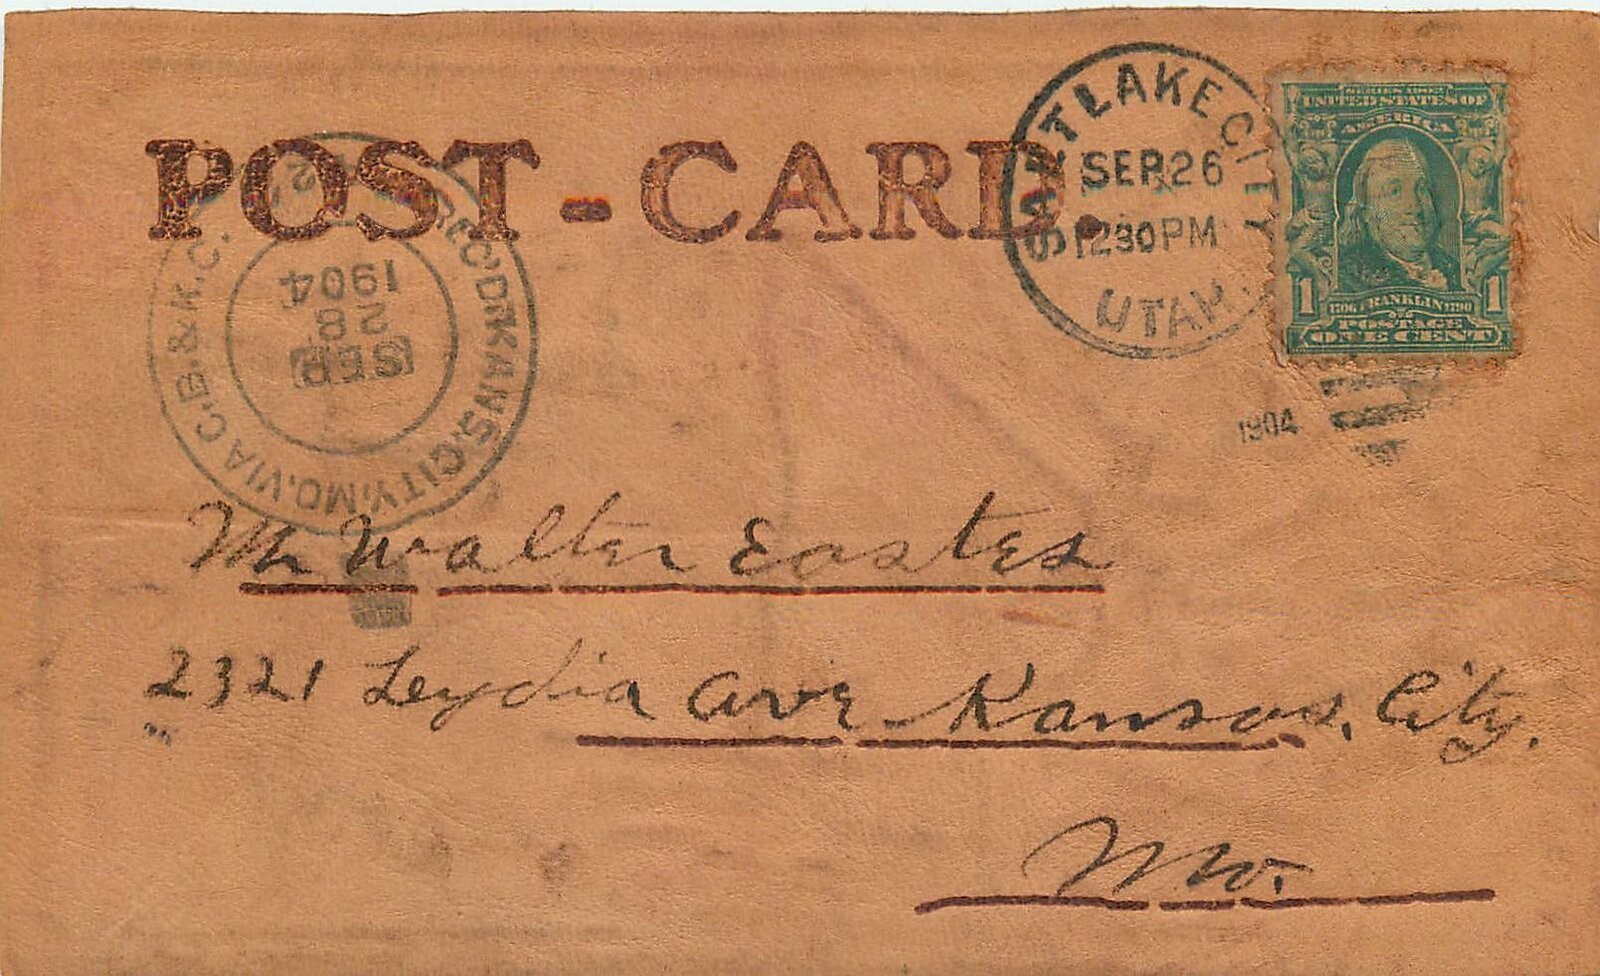 POST-CARD.
SALT LAKE CITY
SEP 26
12 30 PM
UTAH.
1904
SERIES 1902
UNITED STATES OF
AMERICA
1 1706 FRANKLIN 1790 1
POSTAGE
ONE CENT
REC'D. KANS. CITY. MO. VIA C. B. & K. C.
SEP
28
1904
Mr Walter Eastes
2321 Leydia Ave Kansas, City.
Mo.